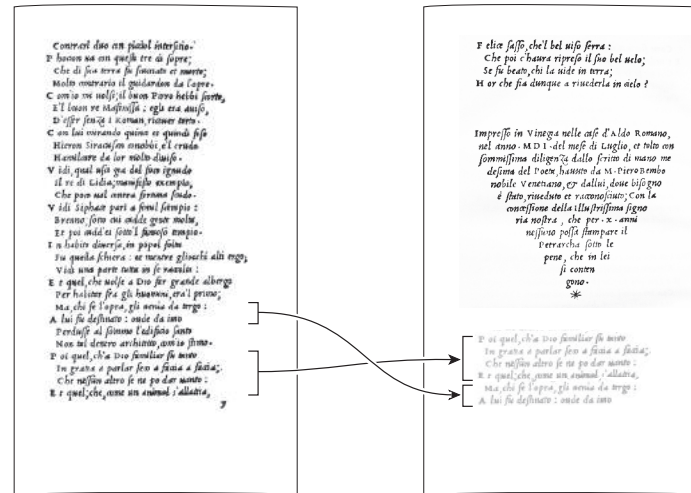 Contrari duo con picciol interstitio.
P hocion va con questi tre di sopre;
Che di sua terra fu scacciato et morto;
Molto contrario il guidardon da l'opre.
C om'io mi volsi; il buon Pirro hebbi scorto,
E'l buon re Massinissa; egli era aviso,
D'esser senza i Roman, ricever torto.
C on lui mirando quinci et quindi fiso
Hieron Siracusan conobbi, e'l crudo
Hamilcare da lor molto diviso.
V idi, qual uscì gia del foco ignudo
il re di Lidia; manifesto exempio,
Che poco val contra fortuna scudo.
V idi Siphace pari a simil scempio:
Brenno, sotto cui cadde gente molta,
Et poi cadd'ei sotto'l famoso tempio.
I n habito diversa, in popol folta
Fu quella schiera: et mentre gliocchi alti ergo;
Vidi una parte tutta in se raccolta:
E t quel, che volse a Dio far grande albergo
Per habitar fra gli huomini, era'l primo;
Ma, chi fe l'opra, gli venia da tergo:
A lui fu destinato: onde da imo
Perdusse al sommo l'edificio santo
Non tal dentro architetto, com'io stimo.
P oi quel, ch'a Dio familiar fu tanto
In gratia a parlar seco a faccia a faccia;
Che nessun altro se ne po dar vanto:
E t quel; che, come un animal s'allaccia,
y
F elice sasso, che'l bel viso serra:
Che poi c'haura ripreso il suo bel velo;
Se fu beato, chi la vide in terra;
H or che fia dunque a rivederla in cielo?
Impresso in Vinegia nelle case d'Aldo Romano,
nel anno. MDI. del mese di Luglio, et tolto con
sommissima diligenza dallo scritto di mano me
desima del Poeta, havuto da M. Piero Bembo
nobile Venetiano, & dallui, dove bisogno
è stato, riveduto et racconosciuto; Con la
concessione della illustrissima signo
ria nostra, che per. x. anni
nessuno possa stampare il
Petrarcha sotto le
pene, che in lei
si conten
gono.
P oi quel, ch'a Dio familiar fu tanto
In gratia a parlar seco a faccia a faccia;
Che nessun altro se ne po dar vanto:
E t quel; che, come un animal s'allaccia,
Ma, chi fe l'opra, gli venia da tergo:
A lui fu destinato: onde da imo